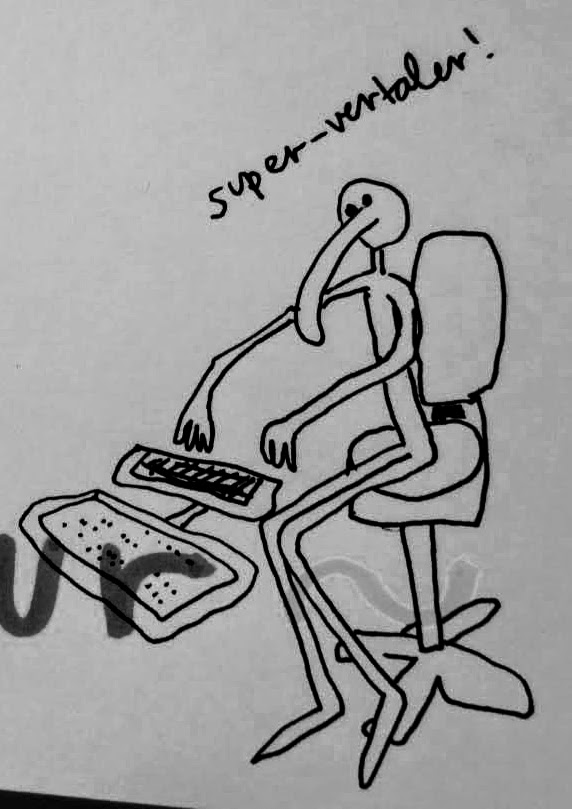 super-vertaler!
ur